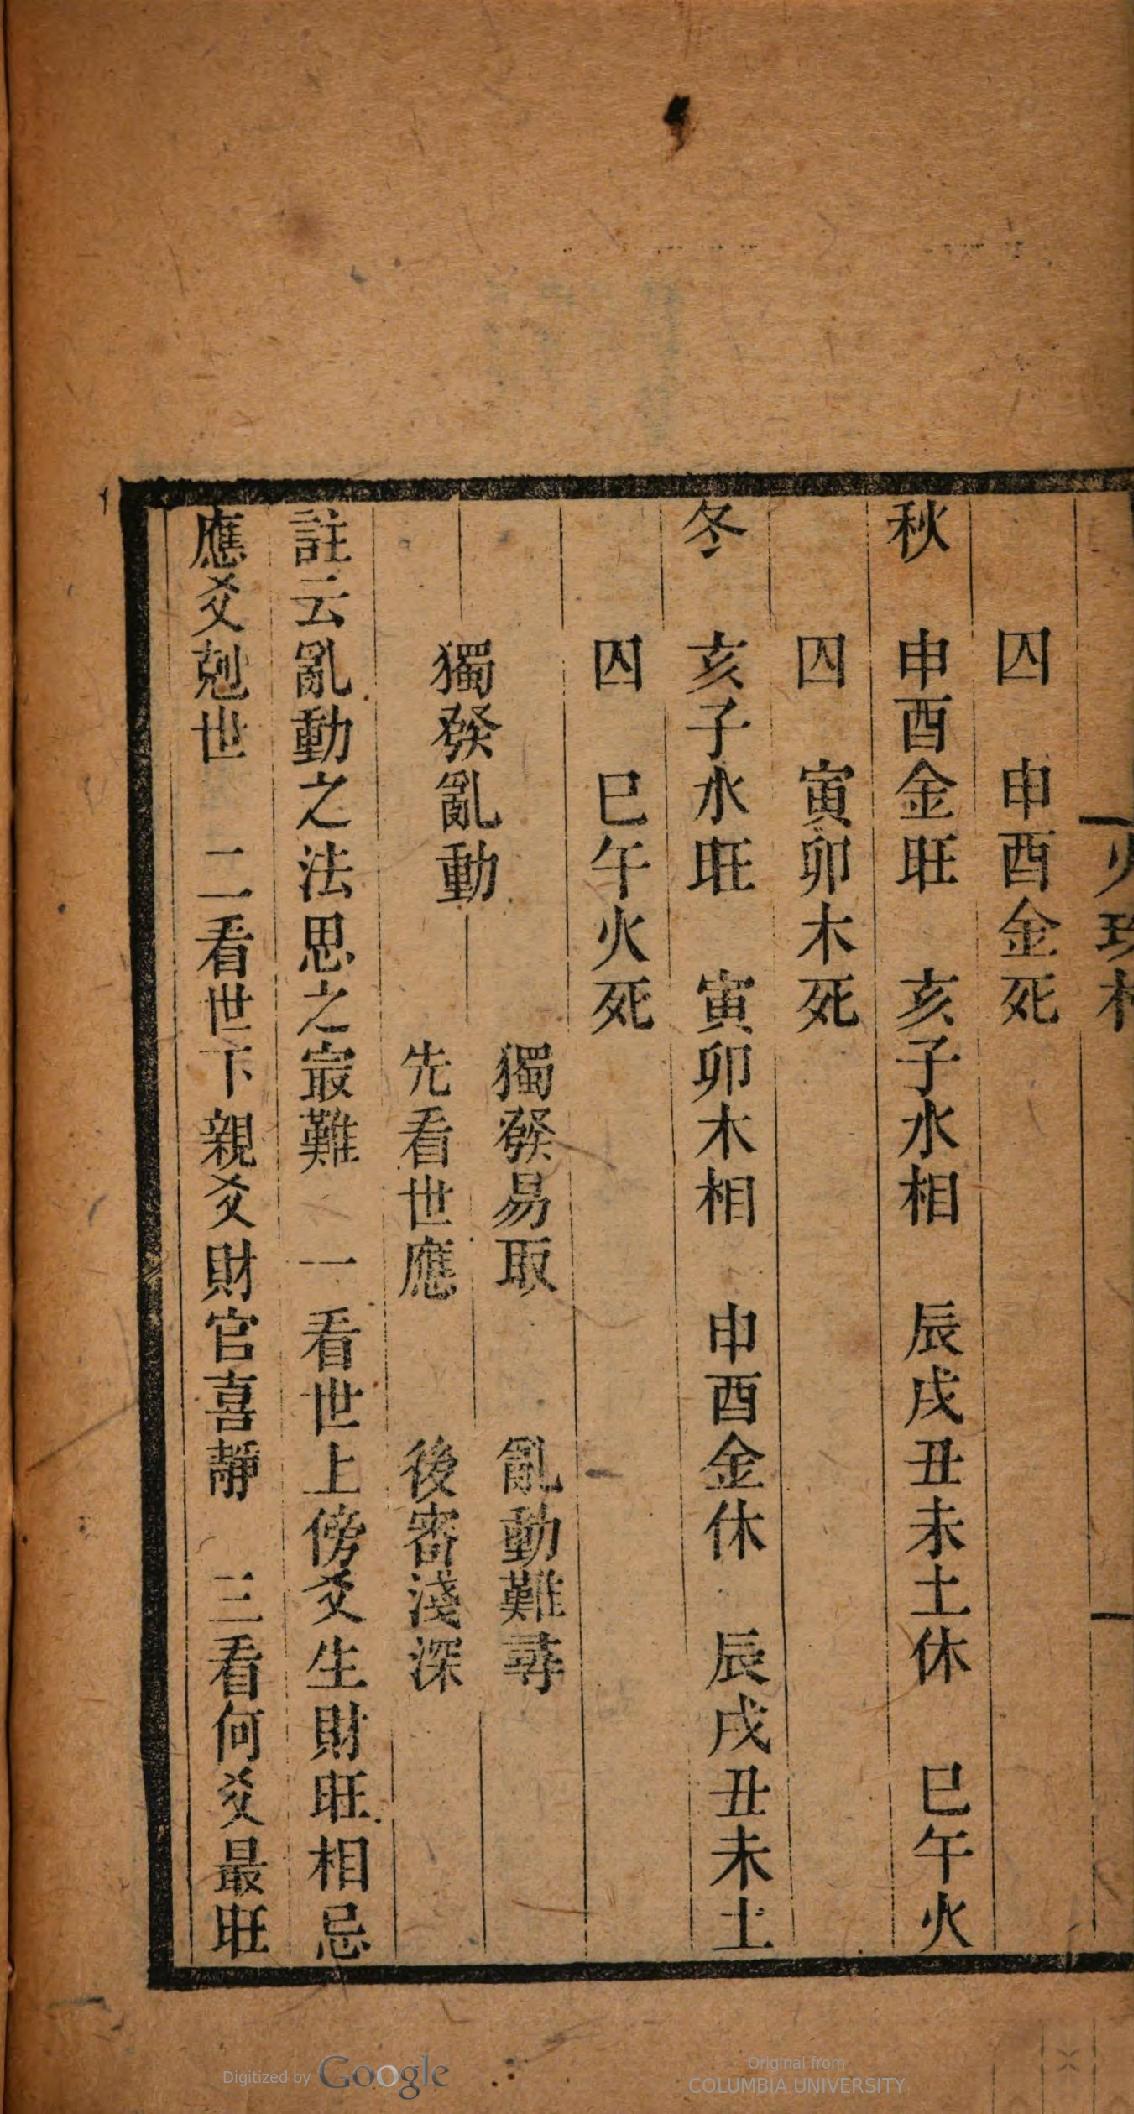 囚　申酉金死
秋　申酉金旺　亥子水相　辰戌丑未土休　巳午火
囚　寅卯木死
冬　亥子水旺　寅卯木相　申酉金休　辰戌丑未土
囚　巳午火死
獨發亂動
獨發易取　亂動難尋
先看世應　後審淺深
註云亂動之法思之㝡難　一看世上傍爻生財旺相忌
應爻剋世　二看世下親爻財官喜靜　三看何爻最旺
Digitized by Google
Original from
COLUMBIA UNIVERSITY